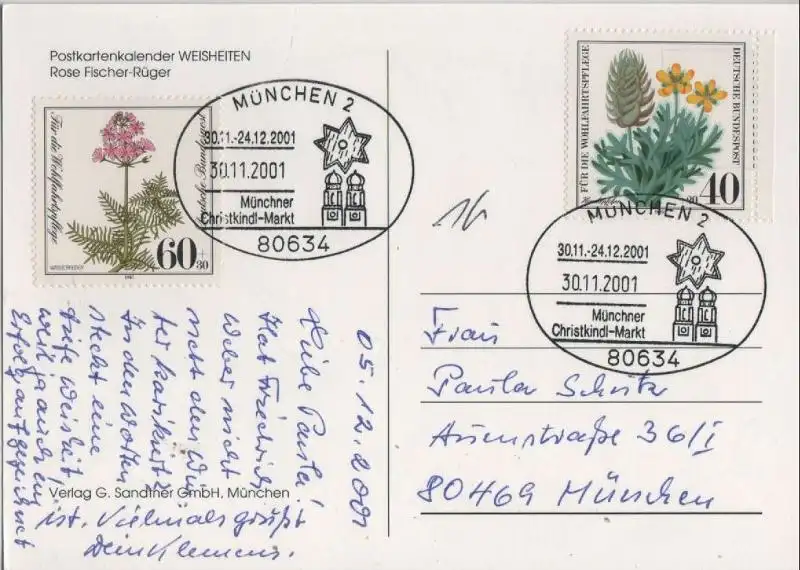 Postkartenkalender WEISHEITEN
Rose Fischer-Rüger
Für die Wohlfahrtspflege
Deutsche Bundespost
60 + 30
WASSERFEDER
1981
MÜNCHEN 2
30.11.-24.12.2001
30.11.2001
Münchner
Christkindl-Markt
80634
FÜR DIE WOHLFAHRTSPFLEGE
DEUTSCHE BUNDESPOST
40
MÜNCHEN 2
30.11.-24.12.2001
30.11.2001
Münchner
Christkindl-Markt
80634
05.12.2001
Liebe Paula!
Hat Friedrich
Weber nicht
nett den Win-
ter karikiert?
In den Worten
steckt eine
tiefe Weisheit,
weil ja auch ein
Erfolg aufgezeichnet
ist. Vielmals grüßt
Dein Klemens.
Verlag G. Sandtner GmbH, München
Frau
Paula Schutz
Auenstraße 36/I
80469 München